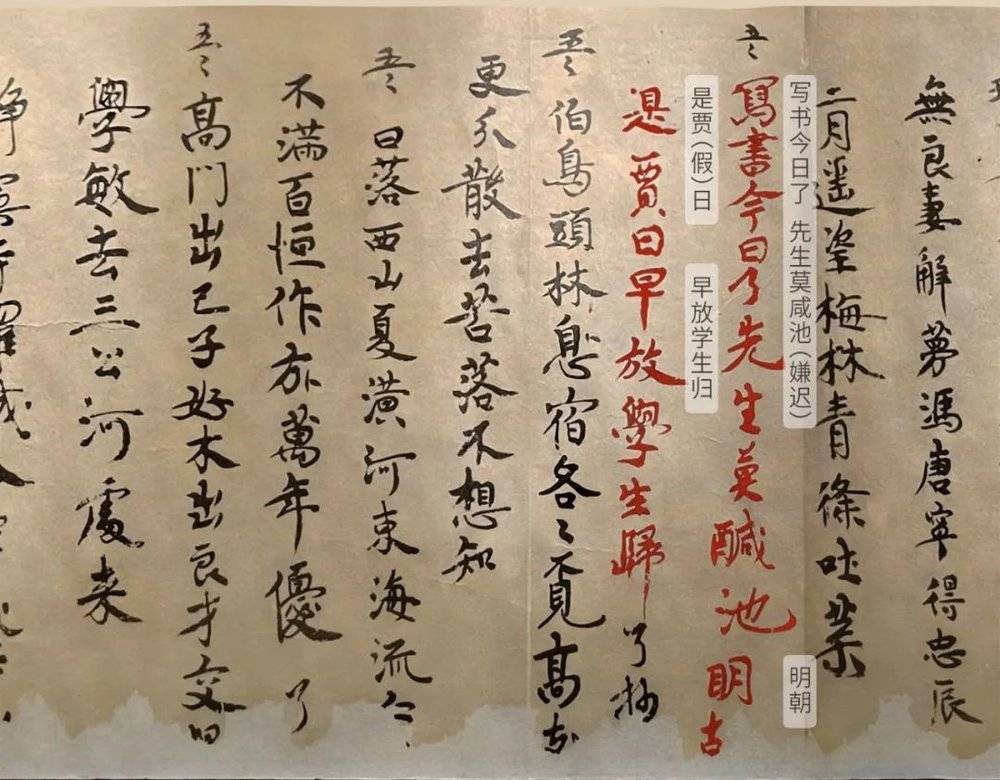 無良妻解夢馮唐寧得忠辰
二月遥望梅林青條吐葉
写书今日了 先生莫咸池(嫌迟)
明朝
五〻寫書今日了先生莫醎池明古
是贾(假)日
早放学生归
是賈日早放學生歸了抄
五〻伯鳥頭林息宿各〻覓高
更分散去苦落不想知
五〻日落西山夏潢河東海流
不滿百恒作万萬年優了
五〻高門出己子好木出良才交口
學敏去三公河處来